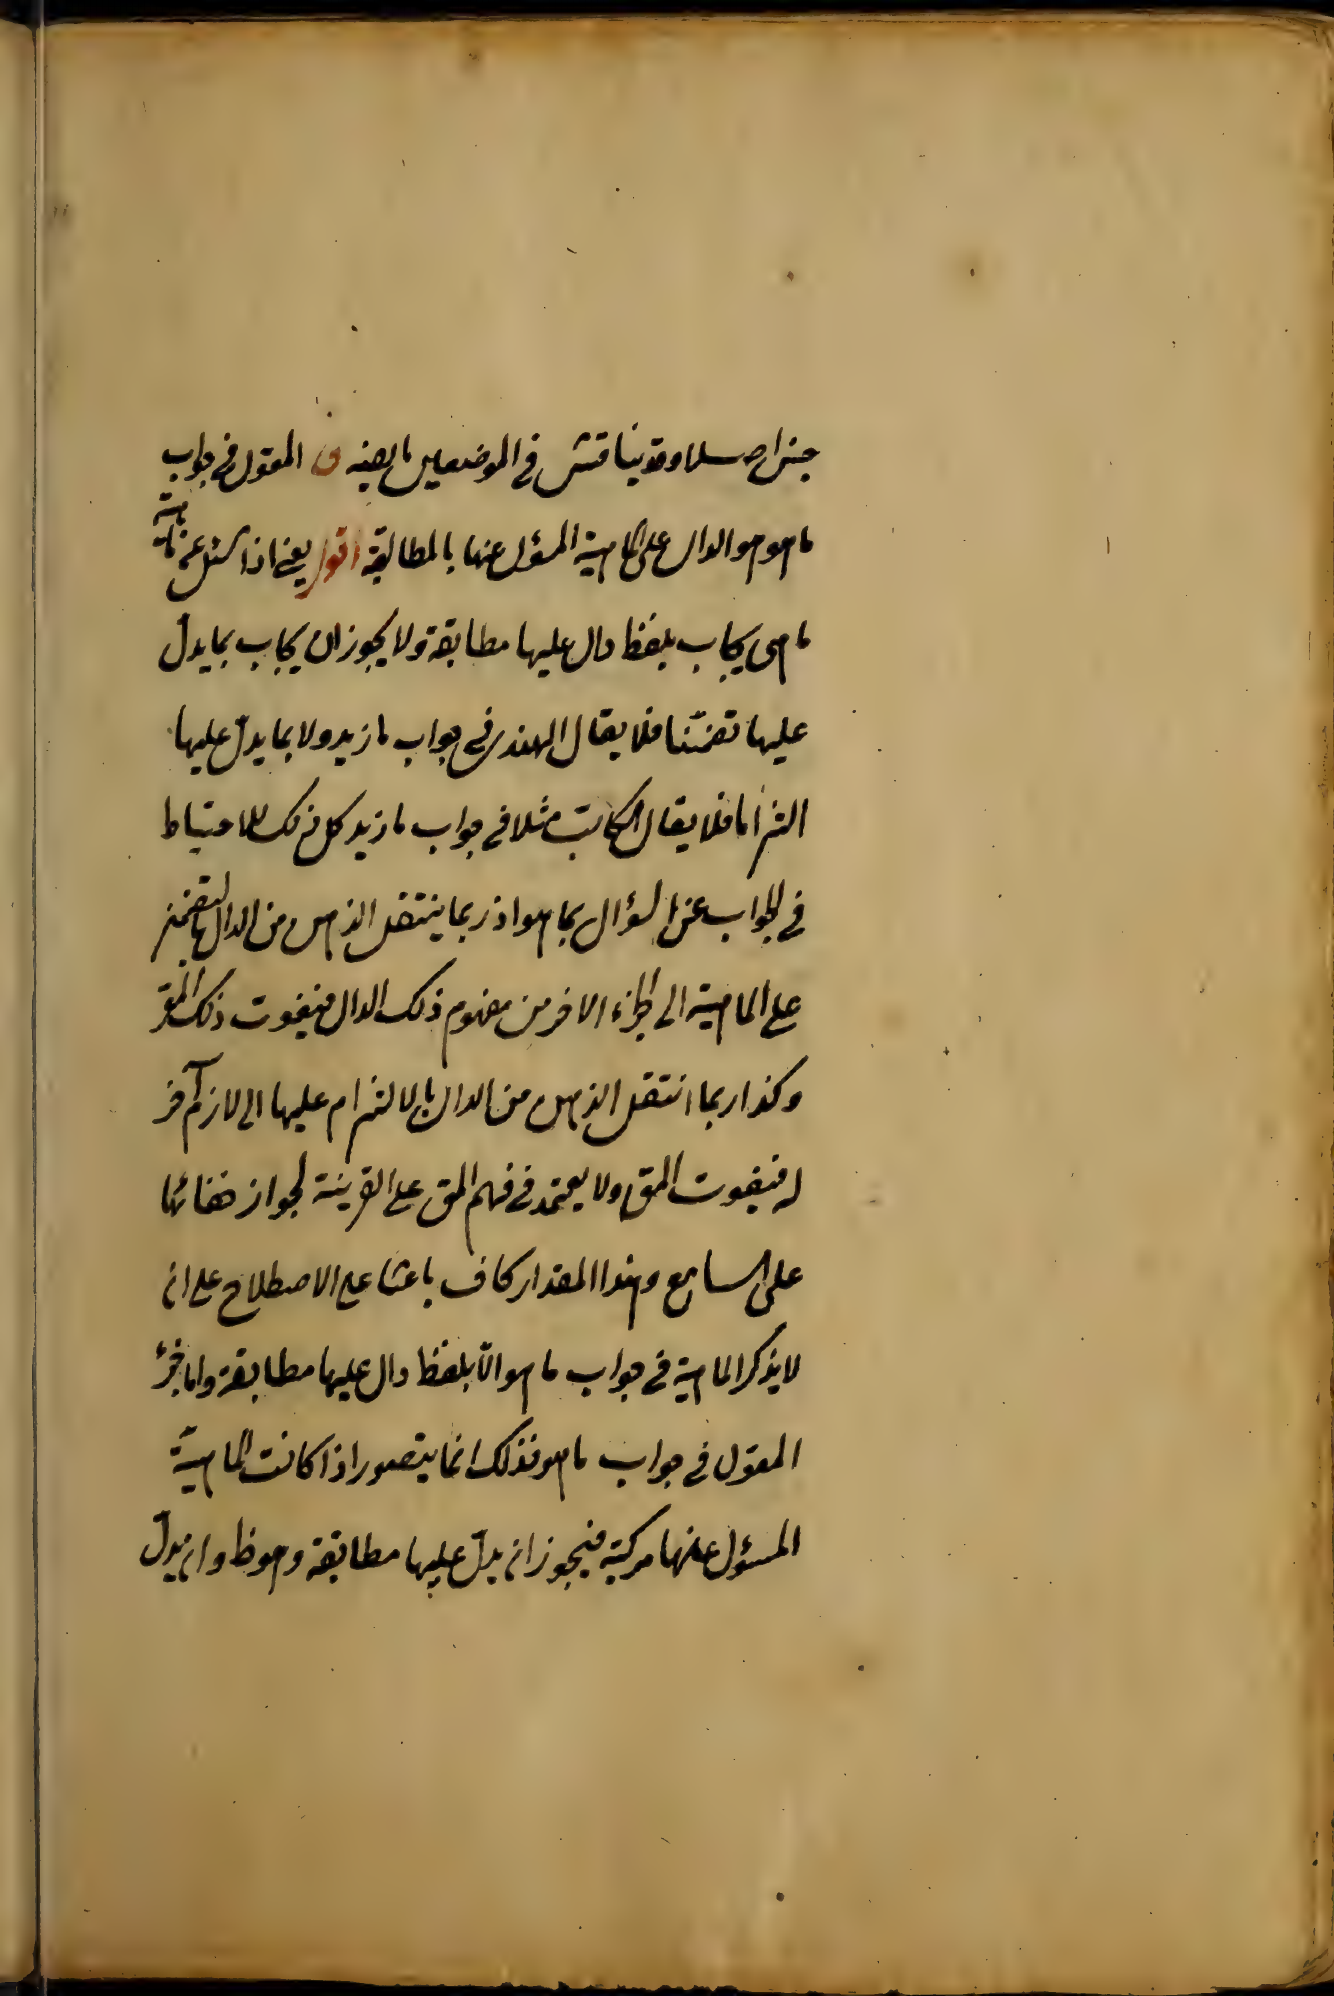 جنس اصلا وقد يناقش في الموضعين بما بعينه ق المقول في جواب
ما هو هو الدال على الماهية المسؤل عنها بالمطابقة اقول يعني اذا سئل عن ماهية
ما هي يجاب بلفظ دال عليها مطابقة ولا يجوز ان يجاب بما يدل
عليها تضمنا فلا يقال الهندي في جواب ما زيد ولا بما يدل عليها
التزاما فلا يقال الكاتب مثلا في جواب ما زيد كل ذلك للاحتياط
في الجواب عن السؤال بما هو اذ ربما ينتقل الذهن من الدال بالتضمن
على الماهية الى الجزء الاخر من مفهوم ذلك الدال فيفوت ذلك المق
وكذا ربما انتقل الذهن من الدال بالالتزام عليها الى لازم آخر
له فيفوت المق ولا يعتمد في فهم المق على القرينة لجواز خفائها
على السامع وهذا المقدار كاف باعثا على الاصطلاح على ان
لا يذكر الماهية في جواب ما هو الا بلفظ دال عليها مطابقة واما جزء
المقول في جواب ما هو فذلك انما يتصور اذا كانت الماهيّة
المسؤل عنها مركبة فيجوز ان يدلّ عليها مطابقة وهو ظ وان يدلّ